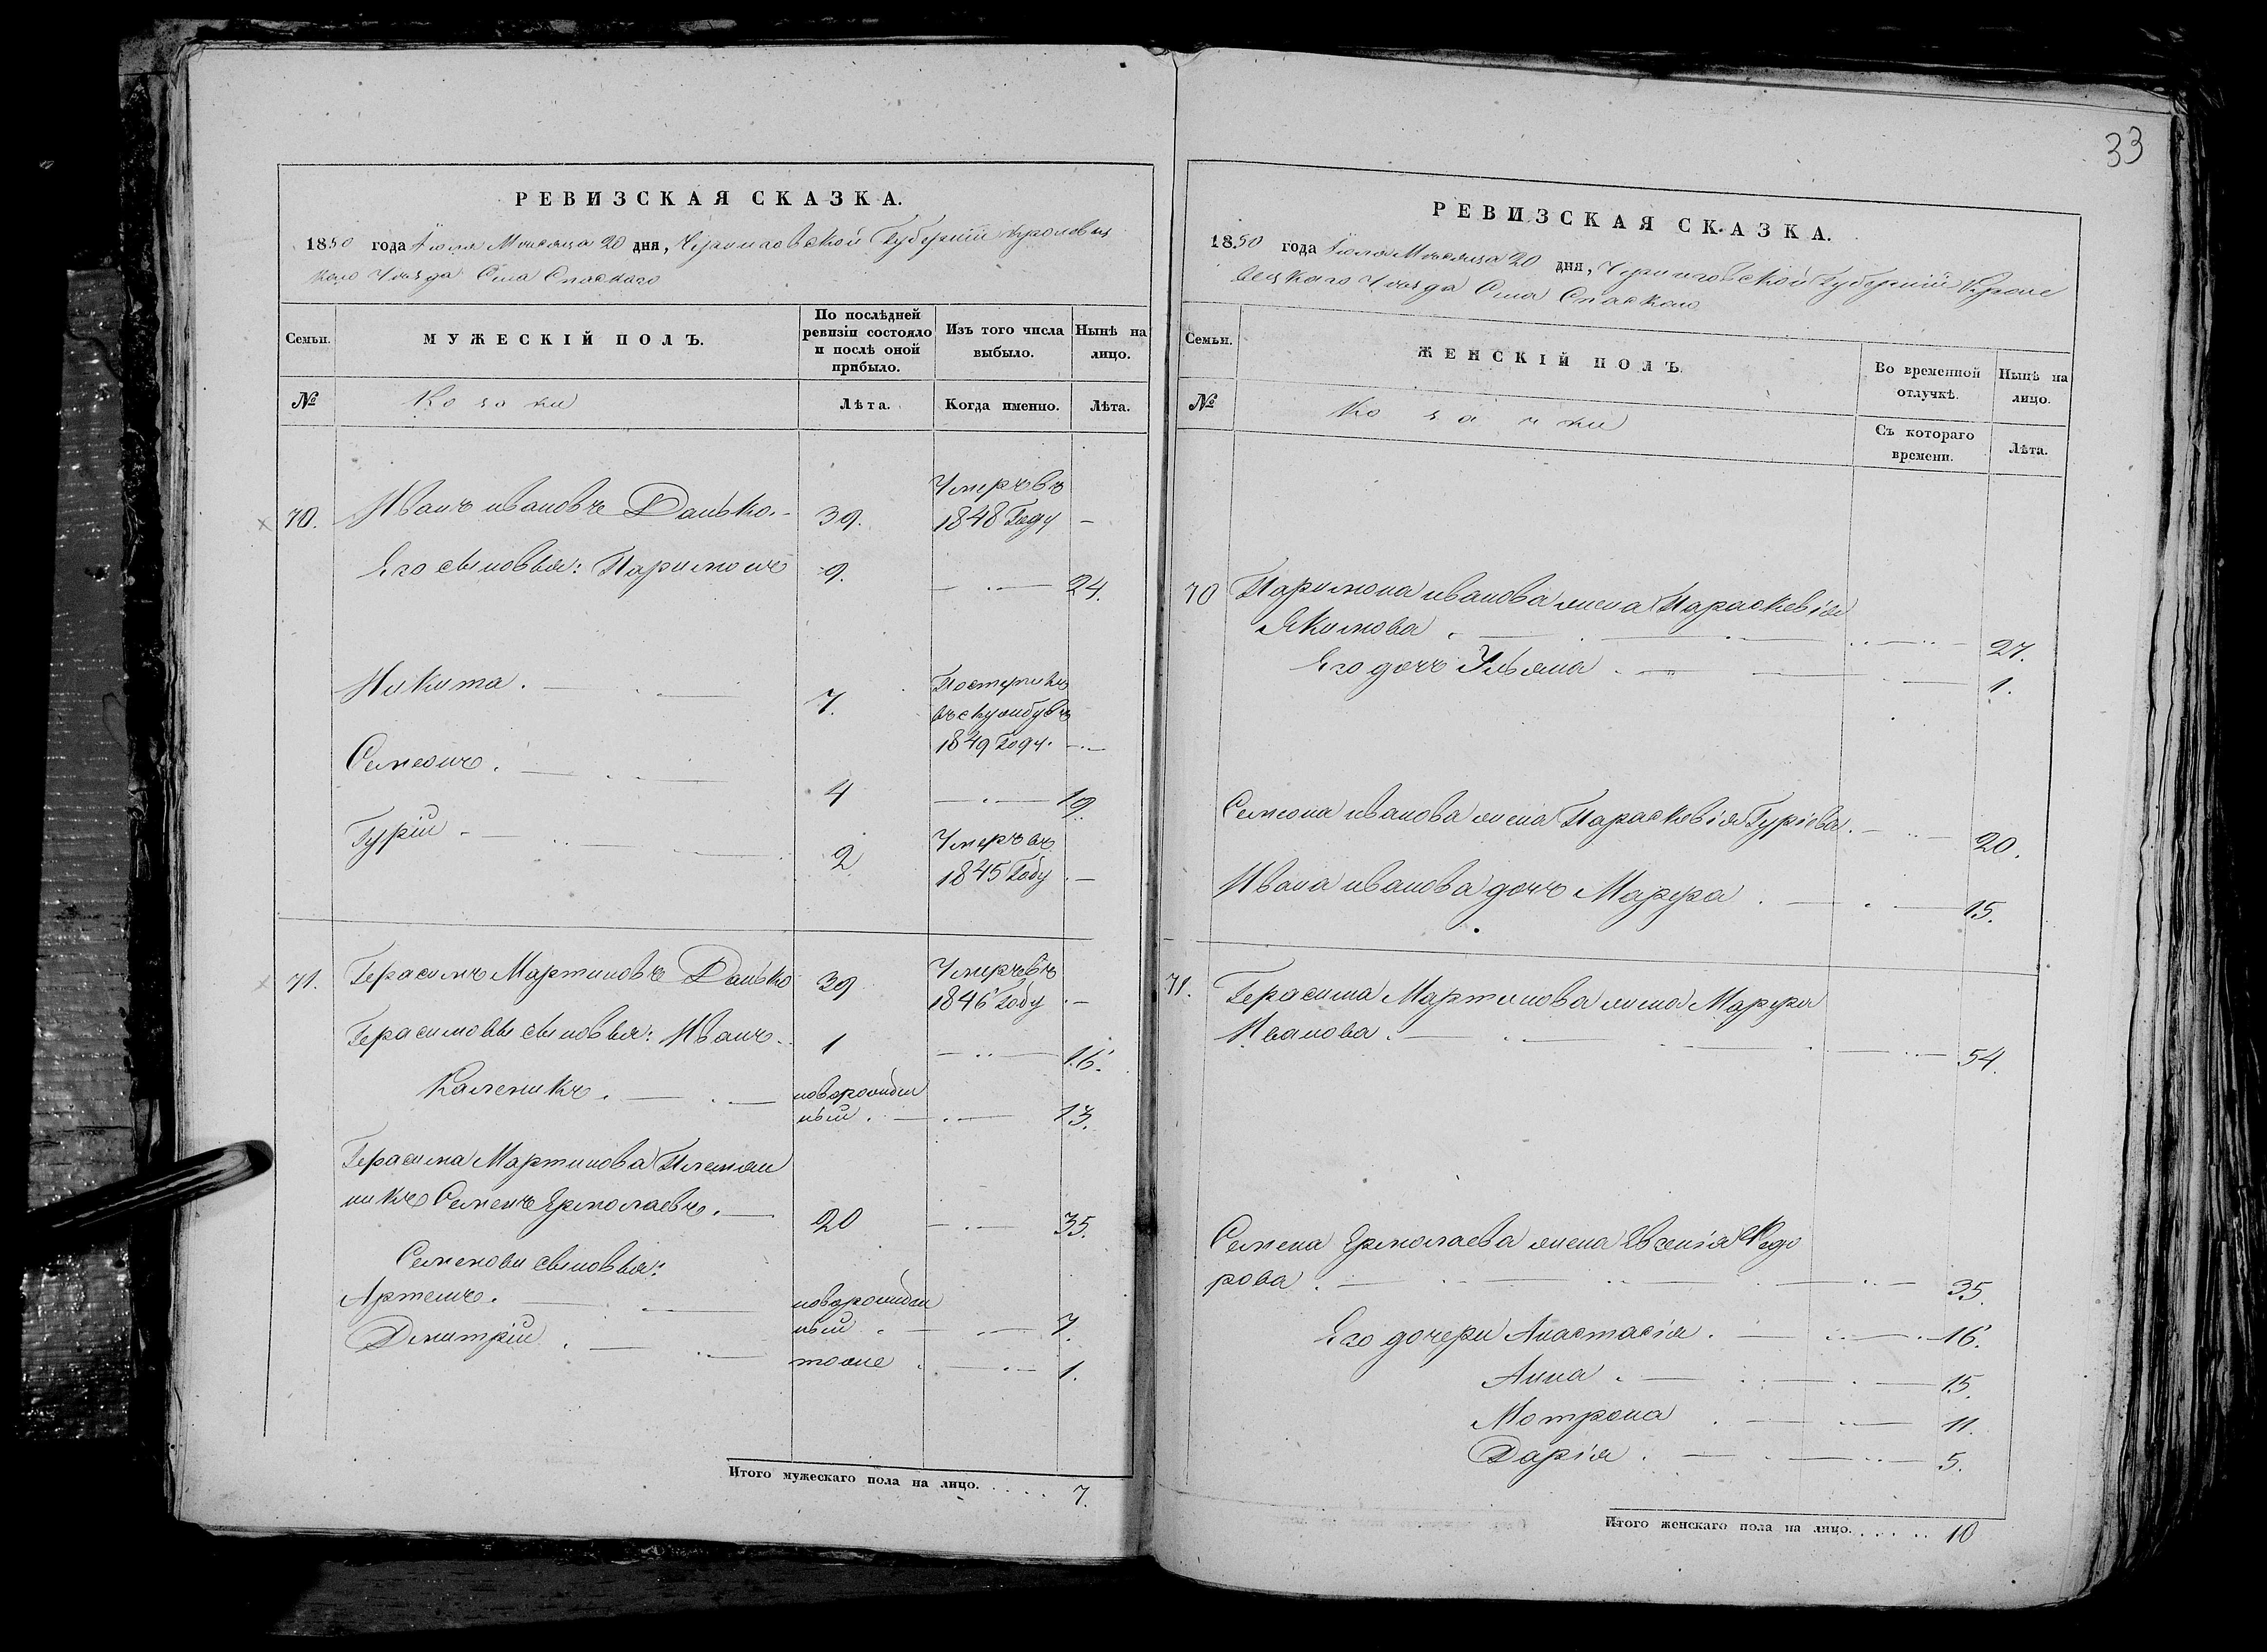 РЕВИЗСКАЯ СКАЗКА.
1850 года Іюля Мѣсяца 20 дня, Черниговской Губерніи Кролевец
каго Уѣзда Села Спаскаго
Семьи.
МУЖЕСКІЙ ПОЛЪ.
По послѣдней
ревизіи состояло
и послѣ оной
прибыло.
Изъ того числа
выбыло.
Нынѣ на
лицо.
№
Козаки
Лѣта.
Когда именно.
Лѣта.
Умеръ въ
70. Иванъ Ивановъ Данько. 39. 1848 Году —
Его сыновья: Паримонъ 9. — 24.
Никита. 7. въ
1849 Году. —
Симеонъ. 4 — 19.
Гурій 2 Умеръ въ
1845 Году —
71. Герасимъ Мартиновъ Данько 39 Умеръ въ
1846 Году —
Герасимовы сыновья: Иванъ 1 — 16.
Каленикъ. новорожден
ный. — 13.
Герасима Мартинова Племян
никъ Семенъ Ермолаевъ. 20 — 35.
Семенови сыновья:
Артемъ. новорожден
ный. — 7.
Дмитрій тоже — 1.
Итого мужескаго пола на лицо. . . . . 7.
33
РЕВИЗСКАЯ СКАЗКА.
1850 года Іюля Мѣсяца 20 дня, Черниговской Губерніи Кроле
вецкаго Уѣзда Села Спаскаго
Семьи.
ЖЕНСКІЙ ПОЛЪ.
Во временной
отлучкѣ.
Нынѣ на
лицо.
№
Козачки
Съ котораго
времени.
Лѣта.
70 Паримона Иванова жена Параскевія
Якимова. — 27.
Его дочь Ульяна. — 1.
Симеона Иванова жена Параскевія Гуріева. — 20.
Ивана Иванова дочь Марфа — 15.
71. Герасима Мартинова жена Марфа
Иванова. — 54.
Семена Ермолаева жена Евгенія Федо
рова. — 35.
Его дочери Анастасія. — 16.
Анна — 15.
Мотрона — 11.
Дарія. — 5.
Итого женскаго пола на лицо. . . . . . 10